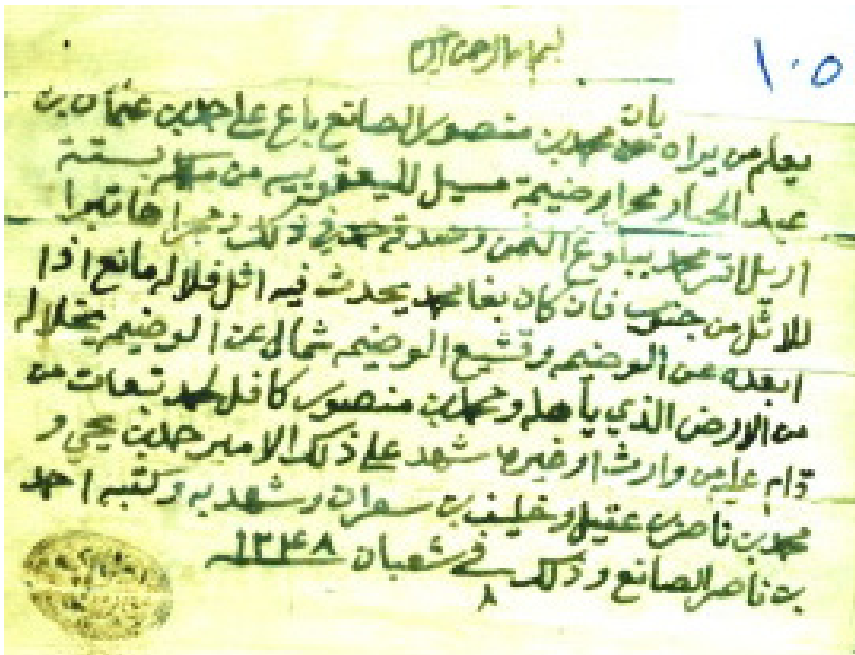 ١٠٥
بسم الله الرحمن الرحيم
يعلم من يراه بان محمد بن منصور الصانع باع على حمد بن عثمان بن
عبد الجبار مجا وضيمة مسيل لليعقوبيه من بستة
اريل اقر محمد ببلوغ الثمن وصدقه حمد في ذلك ومجراها تبرا
للاثل من جنوب فان كان بغا محمد يحدث فيه اثل فلا له مانع اذا
ابعده عن الوضيمه وقشيع الوضيمه شمال عن الوضيمه يخلا له
من الارض الذي يأصله ومحمد بن منصور كافل لحمد تبعات من
قام عليه من وارث او غيره شهد على ذلك الامير حمد بن يحي و
محمد بن ناصر بن عقيل وخليف بن سعران وشهد به وكتبه احمد
بن ناصر الصانع وذلك في ٨ شعبان ١٣٤٨